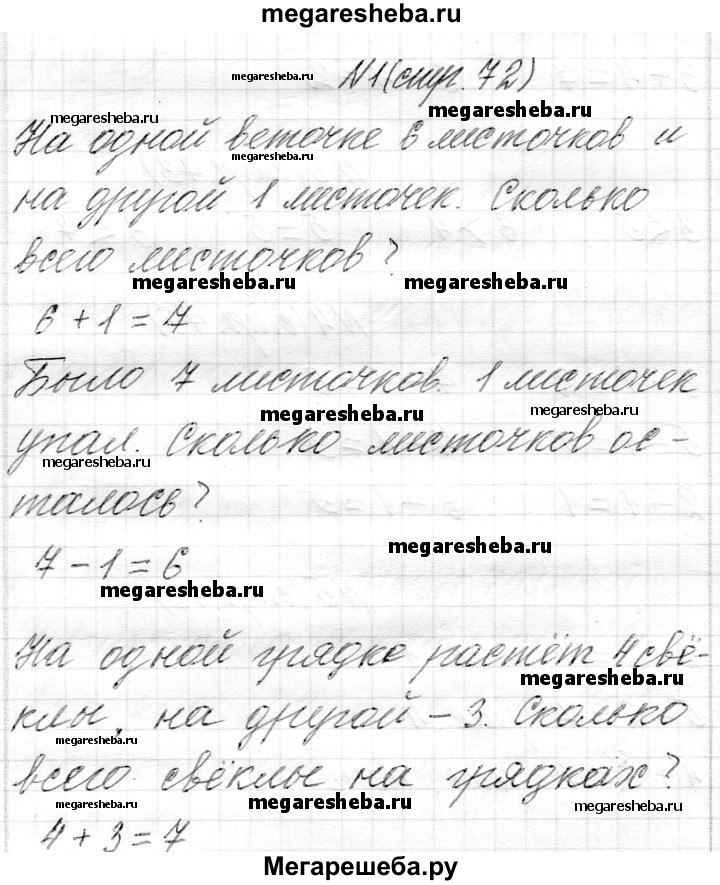 megaresheba.ru
megaresheba.ru №1(стр. 72)
megaresheba.ru megaresheba.ru
На одной веточке 6 листочков и
megaresheba.ru
на другой 1 листочек. Сколько
всего листочков?
megaresheba.ru megaresheba.ru
6 + 1 = 7
Было 7 листочков. 1 листочек
megaresheba.ru megaresheba.ru
упал. Сколько листочков ос-
megaresheba.ru
талось?
megaresheba.ru
7 - 1 = 6
megaresheba.ru
На одной грядке растёт 4 свё-
megaresheba.ru
клы, на другой - 3. Сколько
megaresheba.ru
всего свёклы на грядках?
megaresheba.ru megaresheba.ru megaresheba.ru
4 + 3 = 7
Мегарешеба.ру